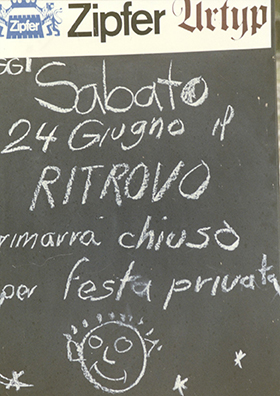 Zipfer Zipfer Urtyp
GGI
Sabato
24 Giugno il
RITROVO
rimarrà chiuso
per festa privata